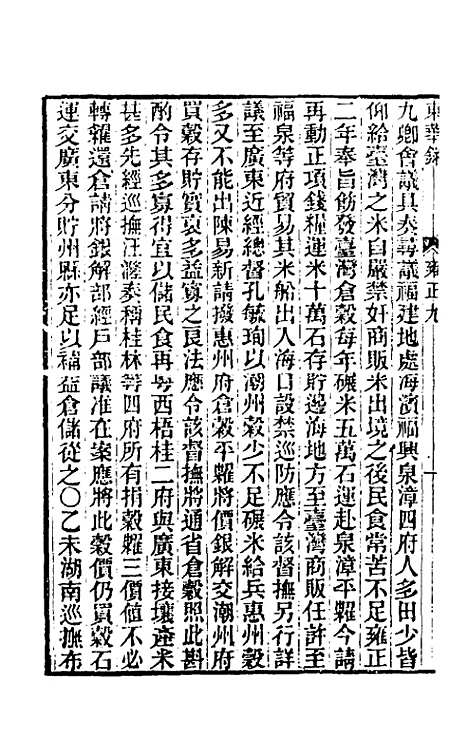 東華錄 雍正九 一
九卿會議具奏尋議福建地處海濱福興泉漳四府人多田少皆
仰給臺灣之米自嚴禁奸商販米出境之後民食常苦不足雍正
二年奉旨飭發臺灣倉穀每年碾米五萬石運赴泉漳平糶今請
再動正項錢糧運米十萬石存貯邊海地方至臺灣商販任許至
福泉等府貿易其米船出入海口設禁巡防應令該督撫另行詳
議至廣東近經總督孔毓珣以潮州穀少不足碾米給兵惠州穀
多又不能出陳易新請撥惠州府倉穀平糶將價銀解交潮州府
買穀存貯實裒多益寡之良法應令該督撫將通省倉穀照此斟
酌令其多寡得宜以儲民食再粵西梧桂二府與廣東接壤產米
甚多先經巡撫汪漋奏稱桂林等四府所有捐穀糶三價值不必
轉糴還倉請將銀解部經戶部議准在案應將此穀價仍買穀石
運交廣東分貯州縣亦足以補益倉儲從之〇乙未湖南巡撫布